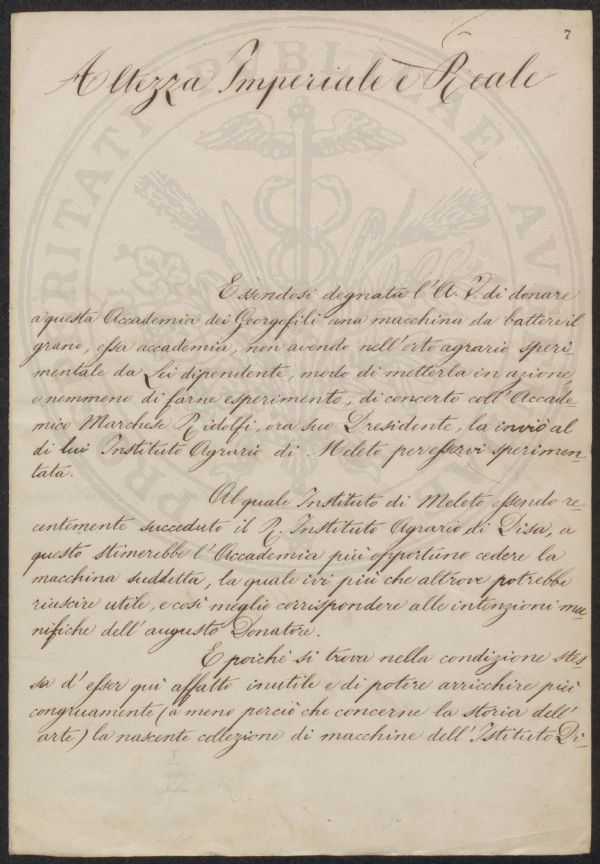 7
Altezza Imperiale e Reale
Essendosi degnata l'A. V. di donare
a questa Accademia dei Georgofili una macchina da battere il
grano, essa accademia, non avendo nell'orto agrario speri
mentale da Lei dipendente, modo di metterla in azione
e nemmeno di farne esperimento, di concerto coll'Accade-
mico Marchese Ridolfi, ora suo Presidente, la inviò al
di lui Instituto Agrario di Meleto per esservi sperimen-
tata.
Al quale Instituto di Meleto essendo re-
centemente succeduto il R. Instituto Agrario di Pisa, a
questo stimerebbe l'Accademia più opportuno cedere la
macchina suddetta, la quale ivi più che altrove potrebbe
riuscire utile, e così meglio corrispondere alle intenzioni mu-
nifiche dell'augusto Donatore.
E poichè si trova nella condizione stes
sa d'esser qui affatto inutile e di potere arricchire più
congruamente (a meno perciò che concerne la storia dell'
arte) la nascente collezione di macchine dell'Istituto Pi-
PROSPERITATI PUBLICAE AU